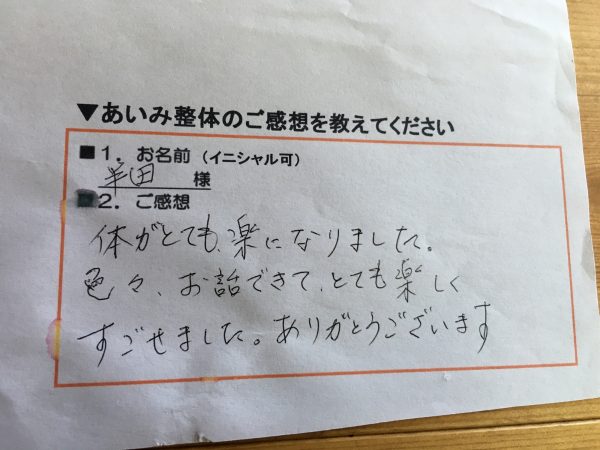 ▼あいみ整体のご感想を教えてください
■1. お名前（イニシャル可）
半田 様
■2. ご感想
体がとても、楽になりました。
色々、お話できて、とても楽しく
すごせました。ありがとうございます